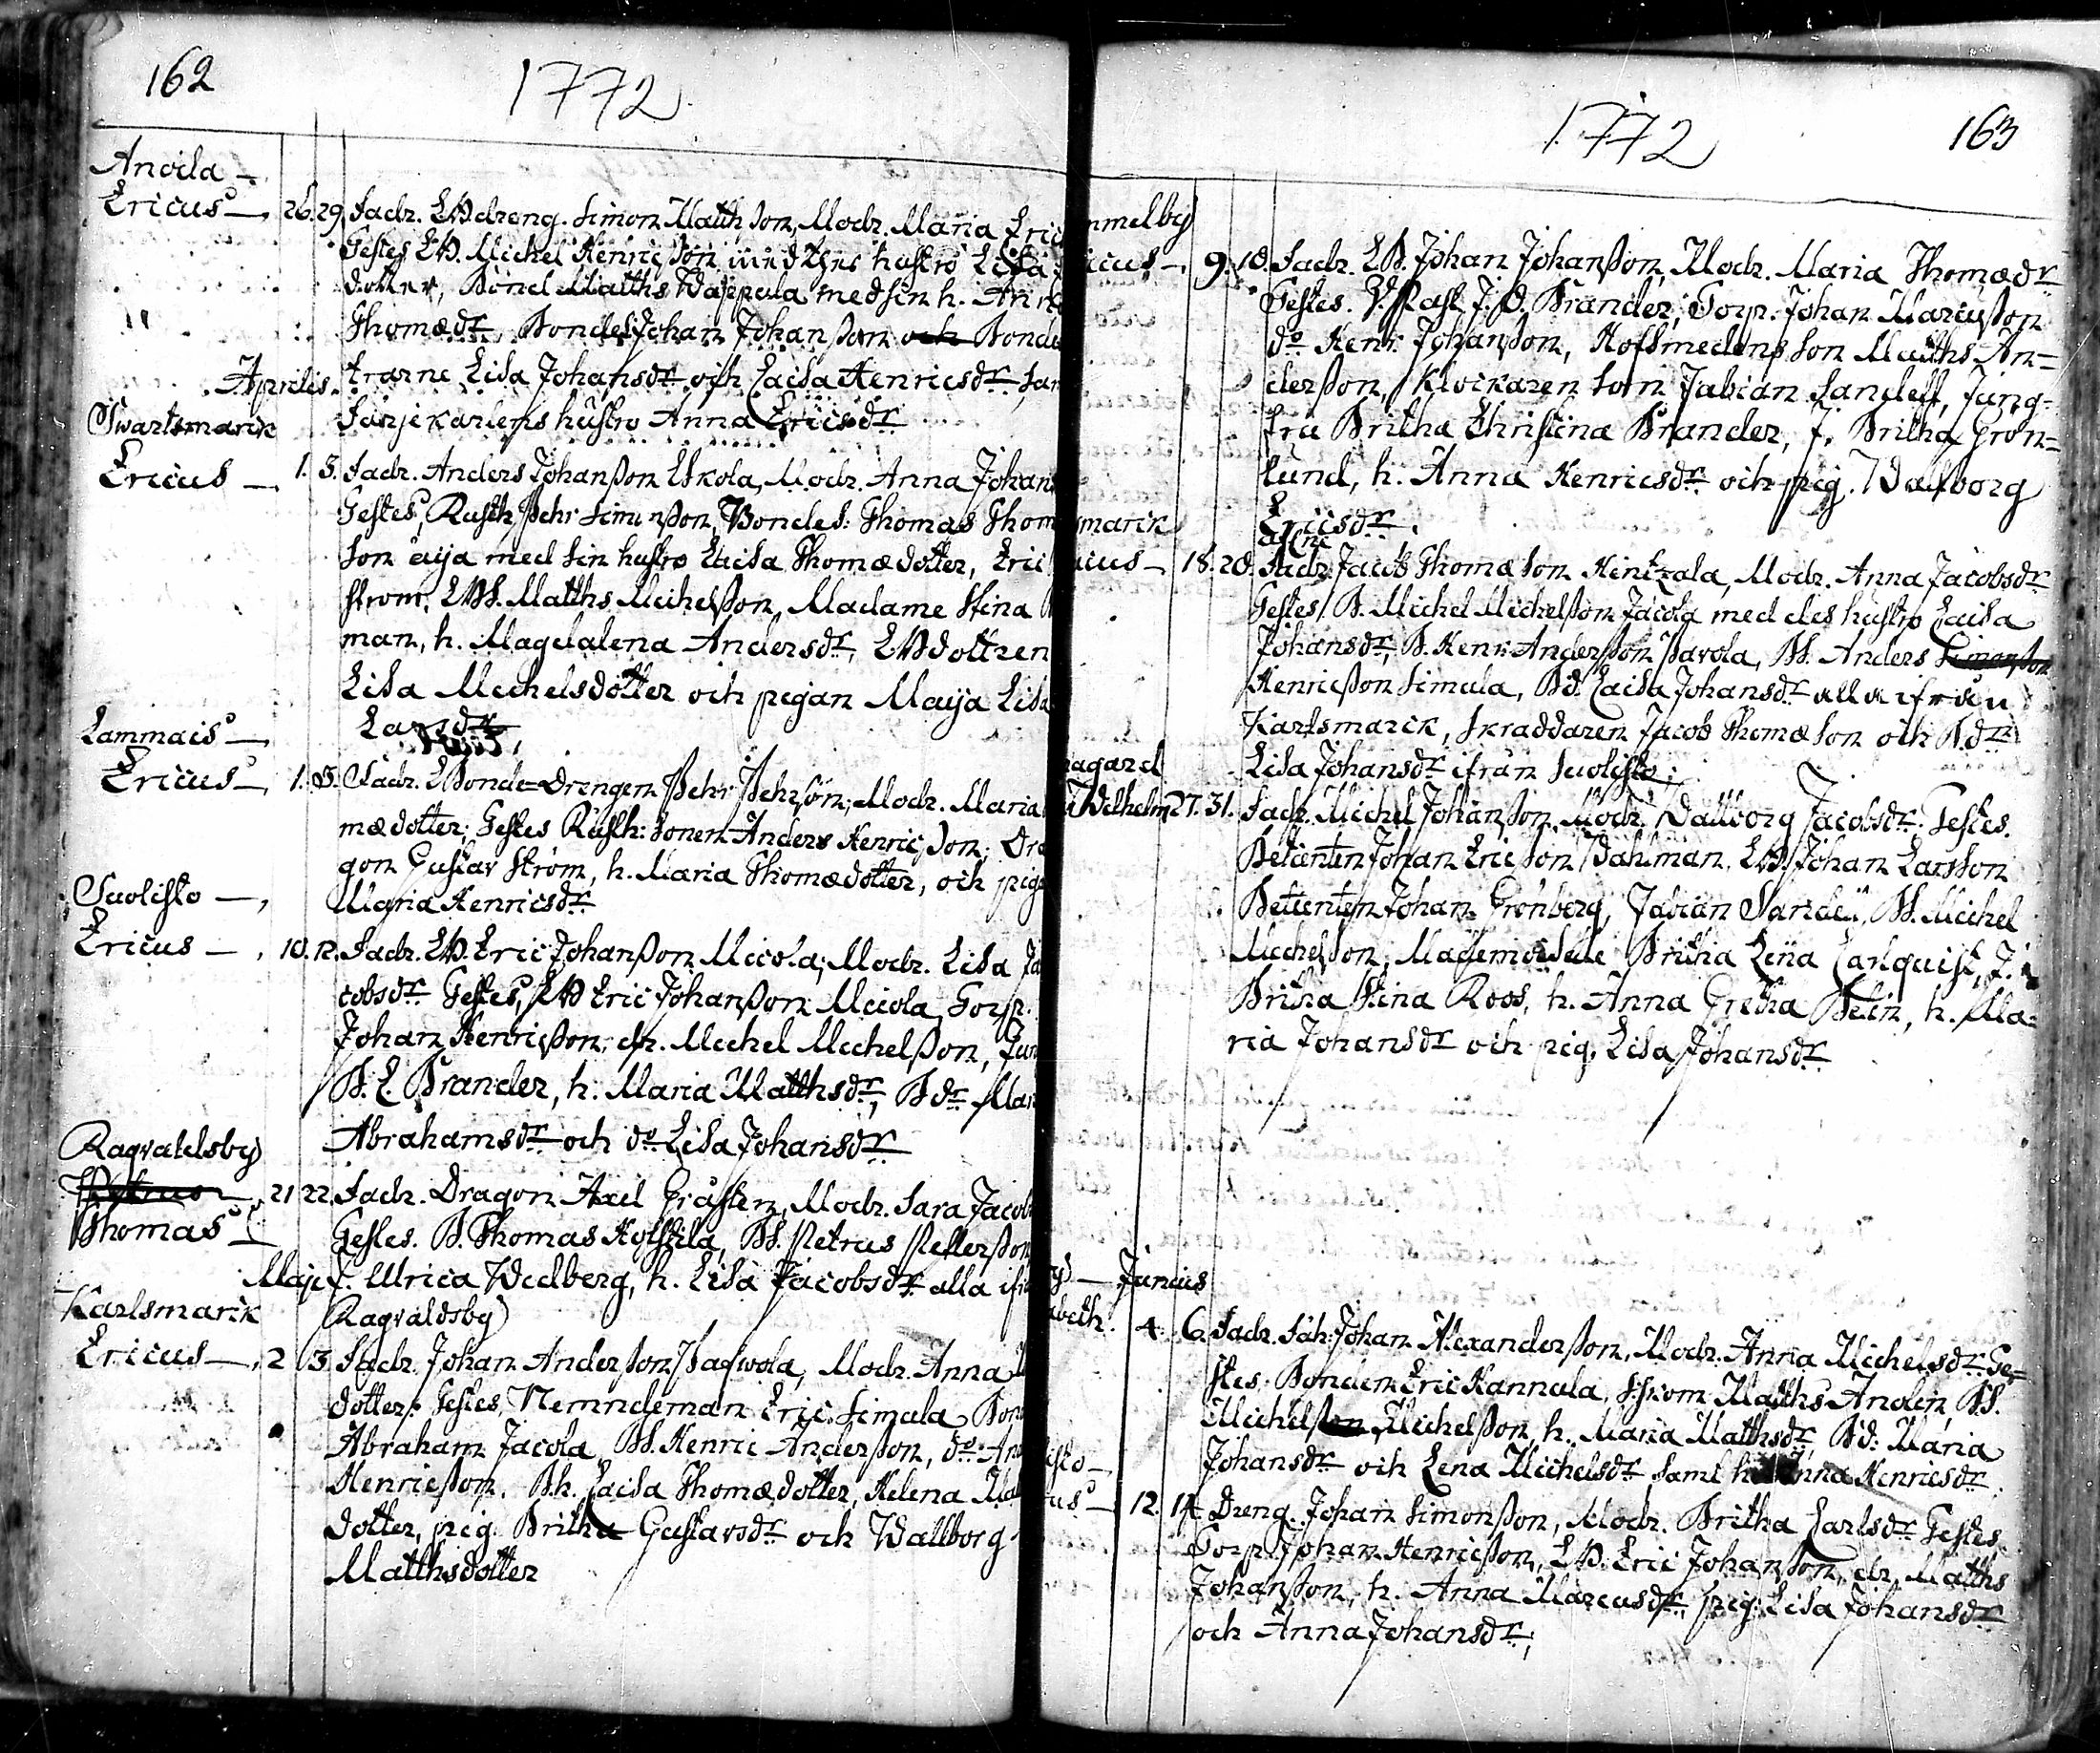 162
1772
Anoila —
Ericus — 26. 29. Fadr. LBdreng. Simon Matthson, Modr. Maria Eric
Testes LB. Michel Henricson med hustro Lisa
dotter, Bond Matths Wäppula med sin h.
Thomædr. Bondes. Johan Johansson och Bonde
Aprilis. trarne Lisa Johansdr. och Caisa Henricsdr.
Swartsmarck
Färjekarlens hustro Anna Ericsdr.
Ericus — 1. 3. Fadr. Anders Johansson Uskola, Modr. Anna Johans
Testes, Rusth Pehr Simonsson, Bondes: Thomas Thom
son äija med sin hustro Caisa Thomædotter, Eric
Ström, LBS. Matths Michelsson, Madame Stina
man, h. Magdalena Andersdr. LBdottren
Lisa Michelsdotter och pigan Maija Lisa
Larsdr.
Lammais —
Ericus — 1. 3. Fadr. Bonde-Drengen Pehr Pehrson, Modr. Maria
mædotter; Testes Rusth: Sonen Anders Henricson, Dra
gon Gustav Ström, h. Maria Thomædotter, och pig
Maria Henricsdr.
Suolisto —
Ericus — 10. 12. Fadr. LB. Eric Johansson Micola, Modr. Lisa Ja
cobsdr. Testes, LB Eric Johansson Micola, Torp.
Johan Henricsson, dr. Michel Michelsson, Jun
B. C. Brander, h: Maria Matthsdr, Bdr. Mar
Abrahamsdr. och do. Lisa Johansdr.
Ragvaldsby
Petrus 21 22. Fadr. Dragon Axel Gråsten, Modr. Sara Jacob
Thomas Testes. B. Thomas BS. Petrus Pettersson
Maji J. Ulrica Wedberg, h. Lisa Jacobsdr. alla ifr
Karlsmarck
Ragvaldsby
Ericus — 2 3. Fadr. Johan Andersson Pagvola, Modr. Anna
dotter: Testes, Nemndeman Eric Simula Bon
Abraham Jacola, BS. Henric Andersson, do. An
Henricsson. Bh. Caisa Thomædotter, Helena Ma
dotter, pig. Britha Gustavsdr. och Wallborg
Matthsdotter
1772
163
mmelby
icus — 9. 10. Fadr. LB. Johan Johansson, Modr. Maria Thomædr.
Testes. J. O. Brander, Torp. Johan Marcusson
do Henr. Johansson, Hofsmedens Son Matths An=
dersson, Klockaren Son Fabian Sandell, Jung=
fru Britha Christina Brander, J. Britha Grön=
lund, h. Anna Henricsdr. och pig. Walborg
Ericsdr.
smarck
icus — 18. 20. Fadr. Jacob Thomæson Hintzala, Modr. Anna Jacobsdr.
Testes, B. Michel Michelsson Jacola med des hustro Caisa
Johansdr, B. Henr. Andersson Pavola, BS. Anders Simonsson
Henricsson Simula, Bd. Caisa Johansdr alla ifrån
Karlsmarck, Skraddaren Jacob Thomæson och Bdr.
Lisa Johansdr ifrån Suolisto;
agard
Wilhelm 27. 31. Fadr. Michel Johansson, Modr. Wallborg Jacobsdr. Testes.
Betienten Johan Ericsson Wahlman. LB. Johan Larsson
Betienten Johan Grönberg, Fabian Sandell, BS. Michel
Michelsson, Mademoiselle Britha Lena Carlquist, J.
Britha Stina Roos, h. Anna Gretha Belin, h. Ma=
ria Johansdr och pig. Lisa Johansdr.
y — Junius
abeth. 4. 6. Fadr. Johan Alexandersson, Modr. Anna Michelsdr. Te=
stes. Bonden Eric Kannula, Matths Anolin BS.
Michelsson Michelsson, h. Maria Matthsdr, Bd: Maria
Johansdr. och Lena Michelsdr. samt h. Anna Henricsdr.
isto —
us — 12. 14. Dreng. Johan Simonsson, Modr. Britha Carlsdr. Testes.
Torp. Johan Henricsson, LB. Eric Johansson, dr. Matths
Johansson, h. Anna Marcusdr. pig. Lisa Johansdr
och Anna Johansdr;